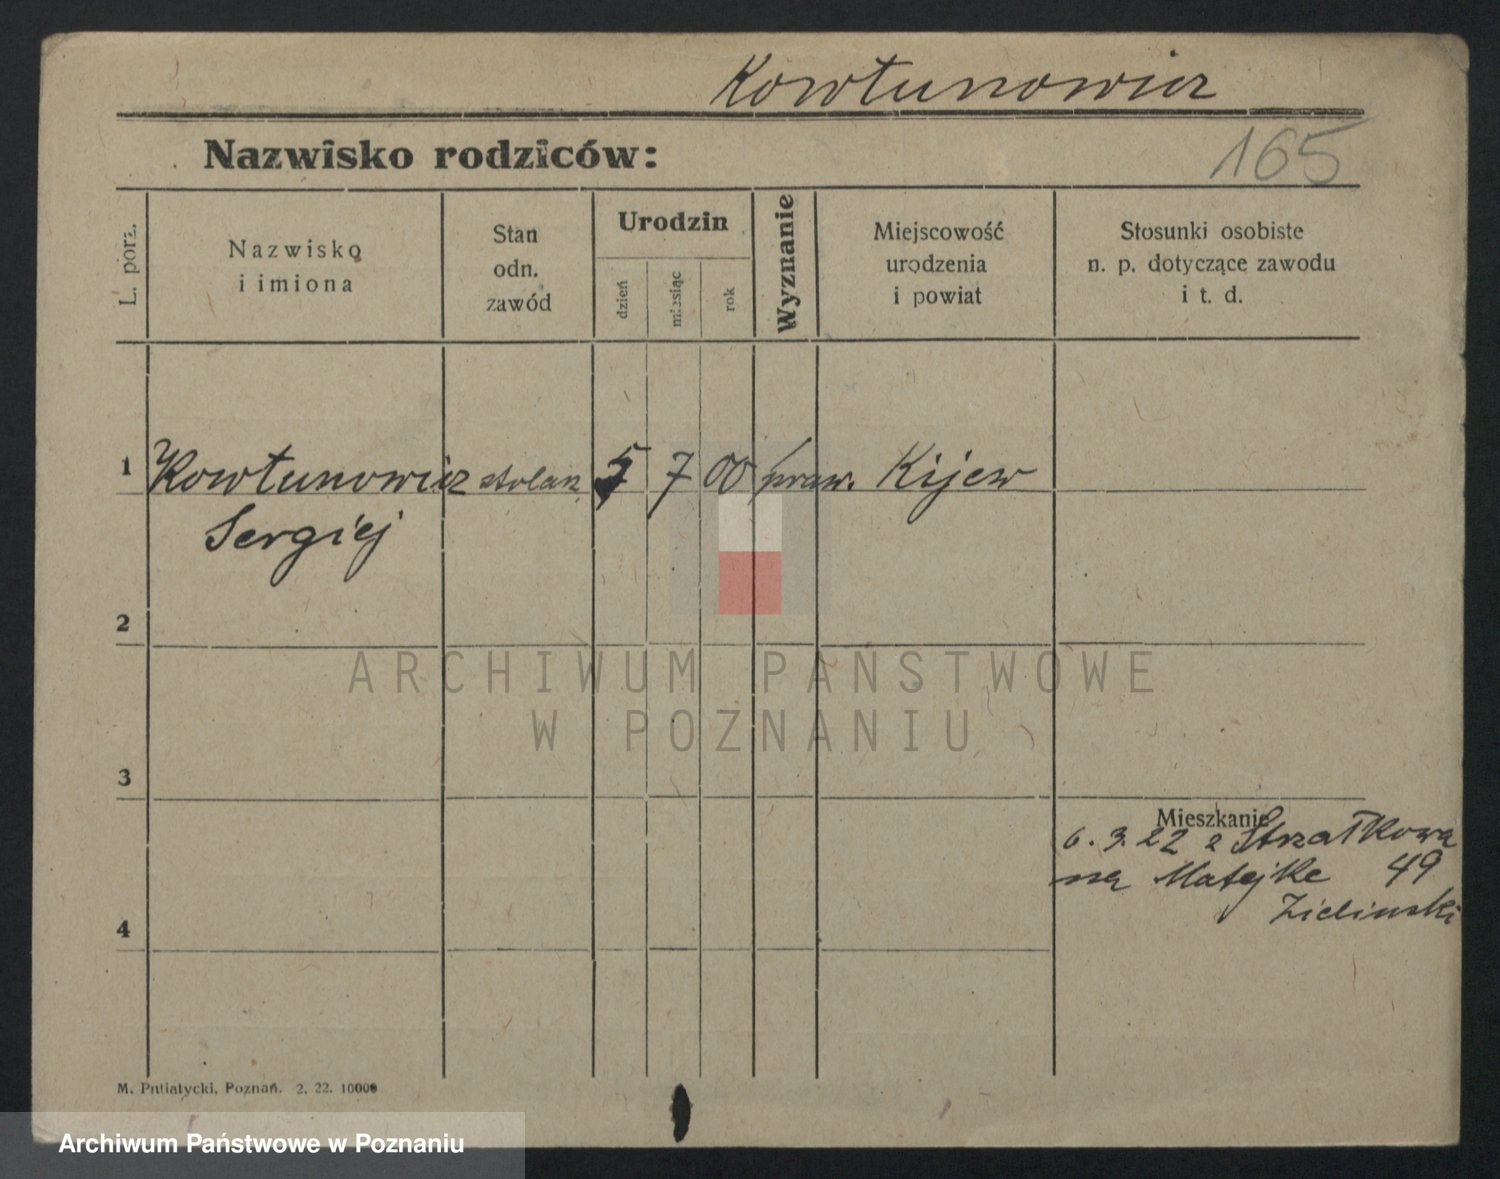 Kowtunowicz
165
Nazwisko rodziców:
L. porz.
Nazwisko
i imiona
Stan
odn.
zawód
Urodzin
dzień
miesiąc
rok
Wyznanie
Miejscowość
urodzenia
i powiat
Stosunki osobiste
n. p. dotyczące zawodu
i t. d.
1 Kowtunowicz stolarz 5 7 00 praw. Kijew
Sergiej
2
ARCHIWUM PAŃSTWOWE
W POZNANIU
3
Mieszkanie
6. 3. 22 z Strzałkowa
na Matejke 49
Zielinski
4
M. Putiatycki, Poznań. 2. 22. 10000
Archiwum Państwowe w Poznaniu